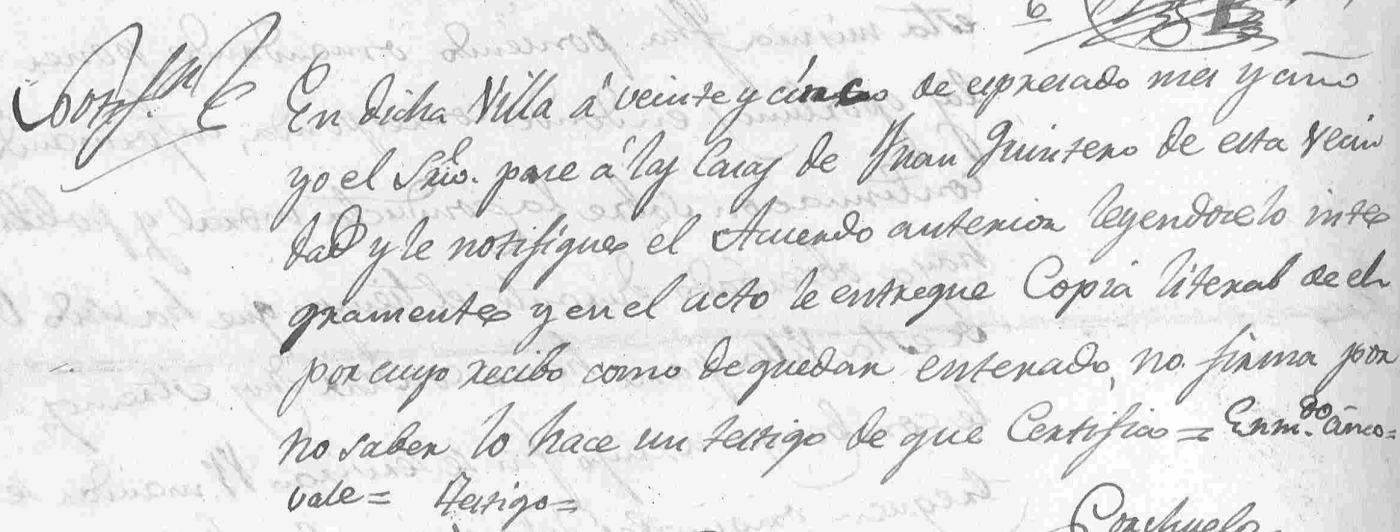 Notif.ⁿ
En dicha Villa á veinte y cinco de espresado mes y año
yo el Srio. pase á las Casas de Juan Quintero de esta vecin
dad y le notifique el Acuerdo anterior leyendoselo inte
gramente y en el acto le entregue Copia literal de el
por cuyo recibo como de quedar enterado, no firma por
no saber lo hace un testigo de que Certifico = Enm.do cinco =
vale = Testigo =